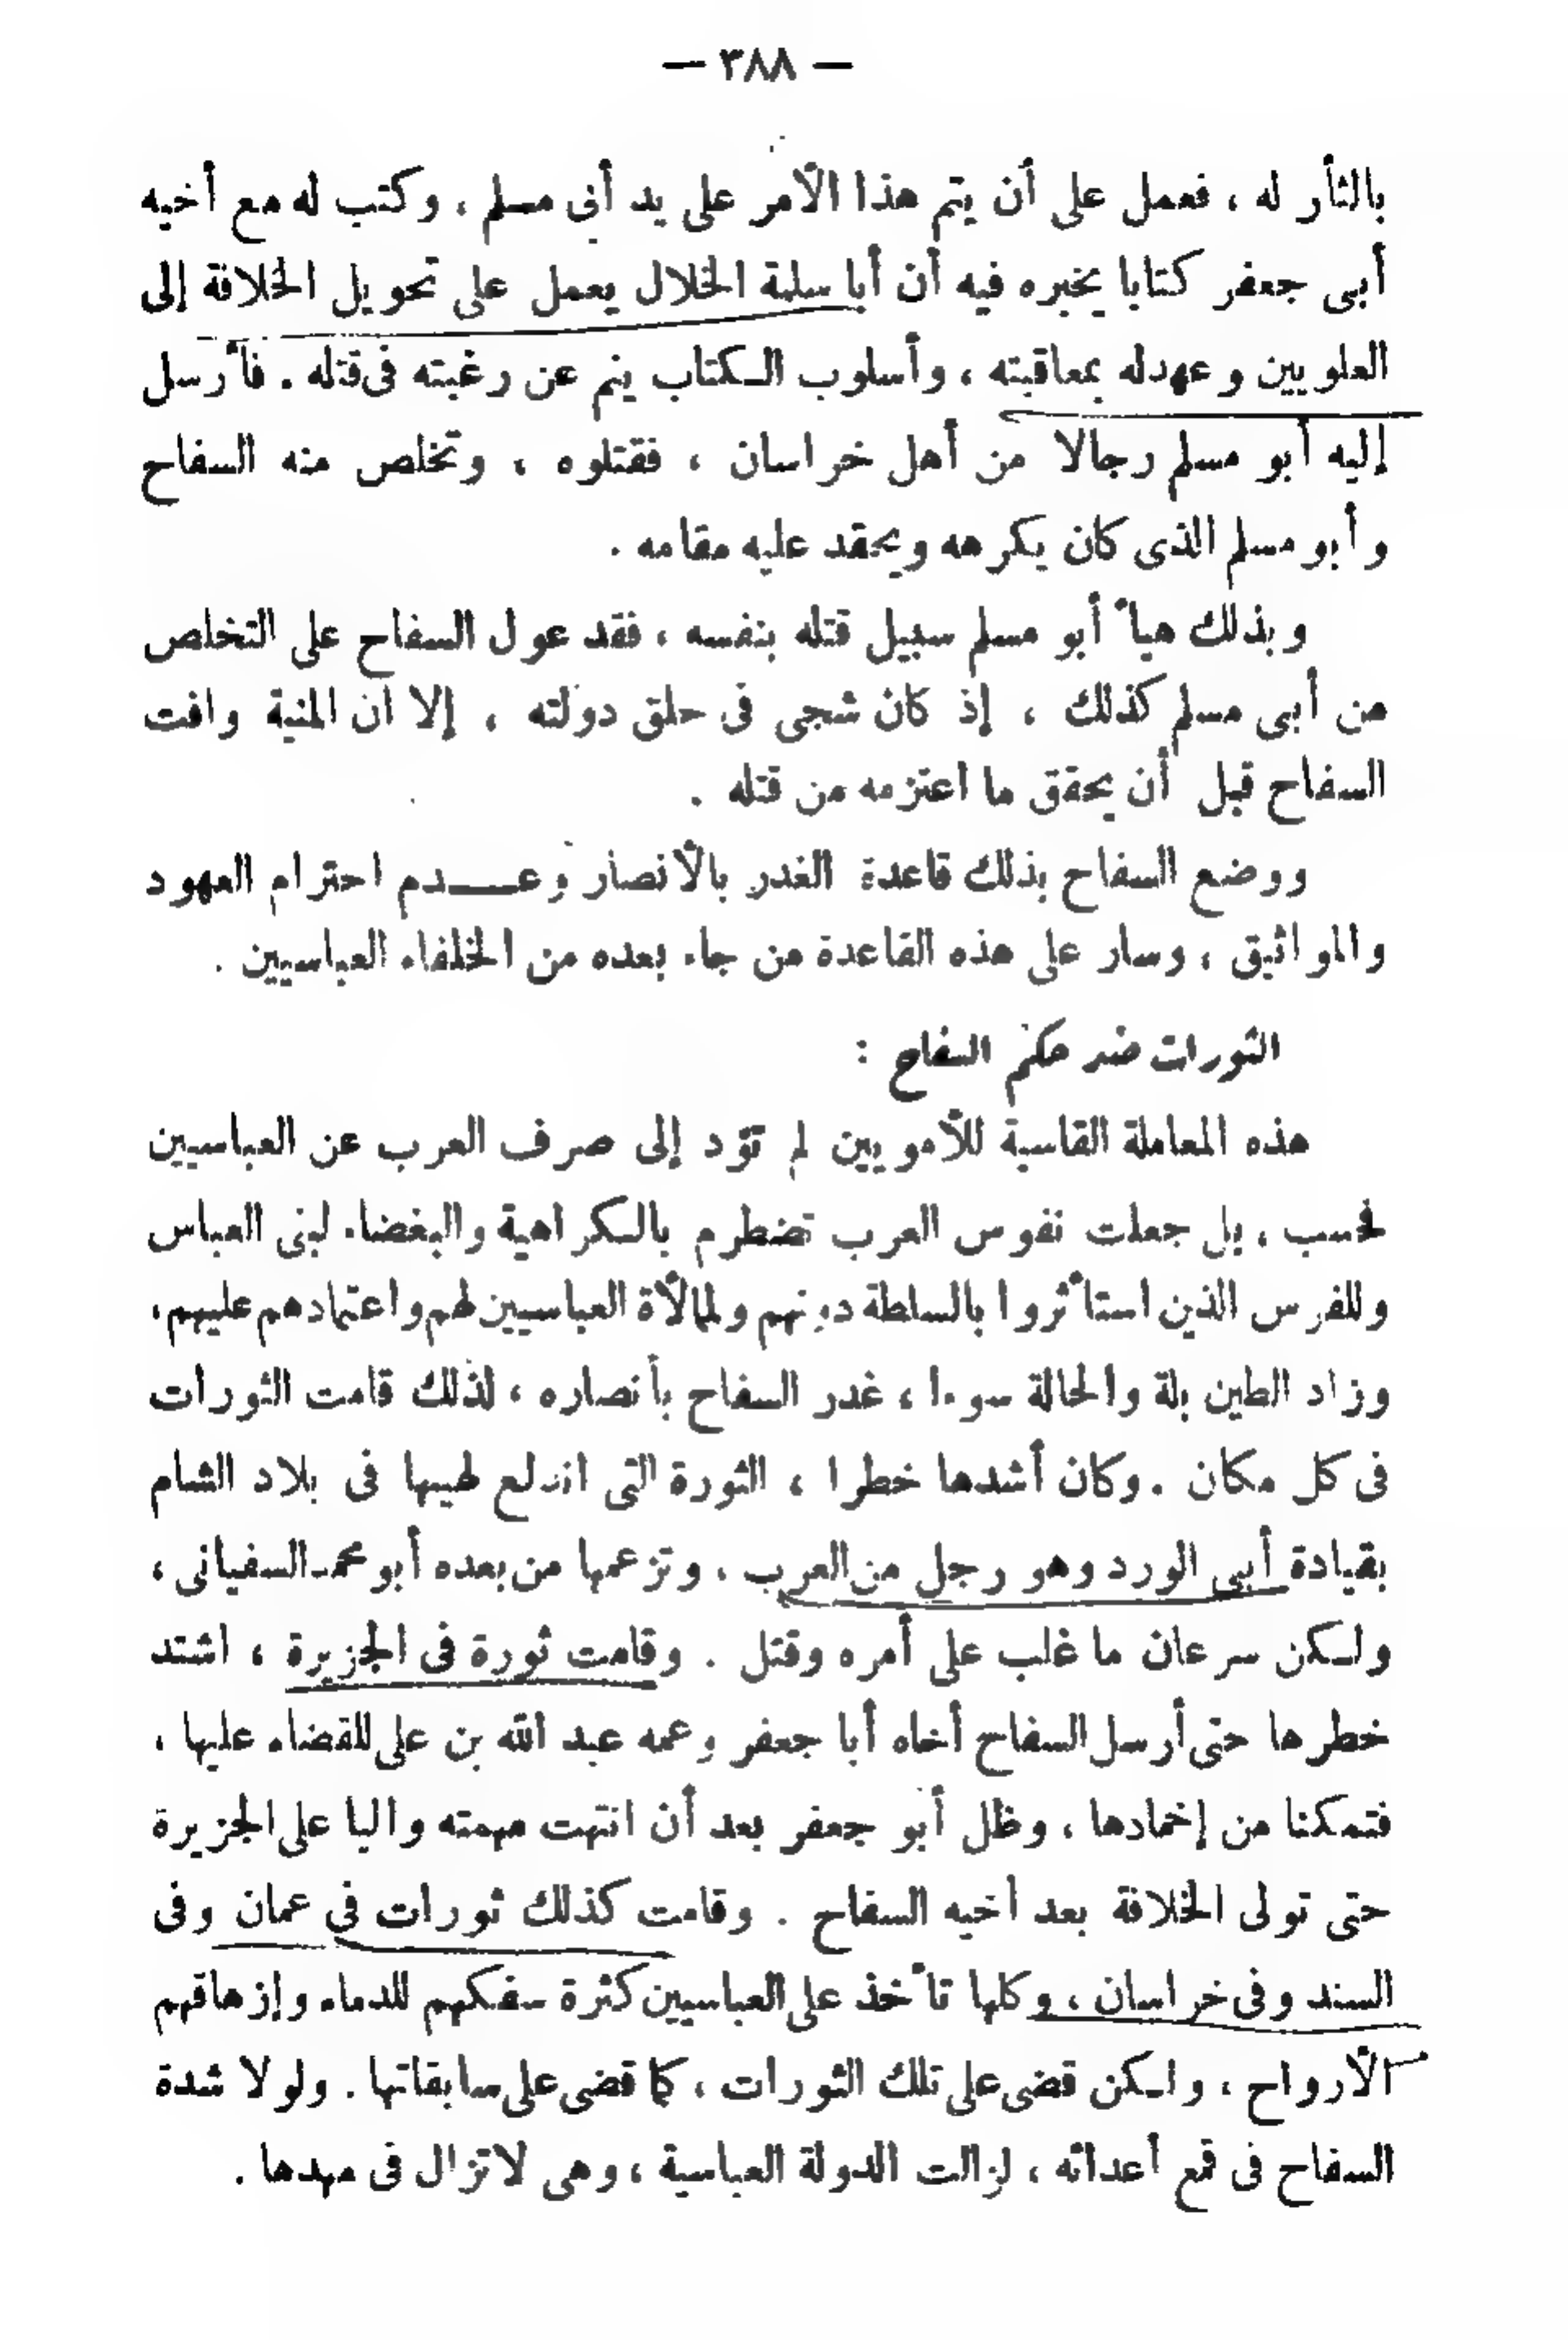 — ٣٨٨ —
بالثأر له ، فعمل على أن يتم هذا الأمر على يد أبى مسلم ، وكتب له مع أخيه
أبى جعفر كتابا يخبره فيه أن أبا سلمة الخلال يعمل على تحويل الخلافة إلى
العلويين وعهد له بمعاقبته ، وأسلوب الكتاب ينم عن رغبته فى قتله . فأرسل
إليه أبو مسلم رجالا من أهل خراسان ، فقتلوه ، وتخلص منه السفاح
وأبو مسلم الذى كان يكرهه ويحقد عليه مقامه .
وبذلك هيأ أبو مسلم سبيل قتله بنفسه ، فقد عول السفاح على التخلص
من أبى مسلم كذلك ، إذ كان شجى فى حلق دولته ، إلا أن المنية وافت
السفاح قبل أن يحقق ما اعتزمه من قتله .
ووضع السفاح بذلك قاعدة الغدر بالأنصار وعـــدم احترام العهود
والمواثيق ، وسار على هذه القاعدة من جاء بعده من الخلفاء العباسيين .
الثورات ضد حكم السفاح :
هذه المعاملة القاسية للأمويين لم تؤد إلى صرف العرب عن العباسيين
فحسب ، بل جعلت نفوس العرب تضطرم بالكراهية والبغضاء لبنى العباس
وللفرس الذين استأثروا بالسلطة دونهم ولممالأة العباسيين لهم واعتمادهم عليهم،
وزاد الطين بلة والحالة سوءا ، غدر السفاح بأنصاره ، لذلك قامت الثورات
فى كل مكان . وكان أشدها خطرا ، الثورة التى اندلع لهيبها فى بلاد الشام
بقيادة أبى الورد وهو رجل من العرب ، وتزعمها من بعده أبو محمد السفيانى ،
ولكن سرعان ما غلب على أمره وقتل . وقامت ثورة فى الجزيرة ، اشتد
خطرها حتى أرسل السفاح أخاه أبا جعفر وعمه عبد الله بن على للقضاء عليها ،
فتمكنا من إخمادها ، وظل أبو جعفر بعد أن انتهت مهمته واليا على الجزيرة
حتى تولى الخلافة بعد أخيه السفاح . وقامت كذلك ثورات فى عمان وفى
السند وفى خراسان ، وكلها تأخذ على العباسيين كثرة سفكهم للدماء وإزهاقهم
الأرواح ، ولكن قضى على تلك الثورات ، كما قضى على سابقاتها . ولولا شدة
السفاح فى قمع أعدائه ، لزالت الدولة العباسية ، وهى لا تزال فى مهدها .